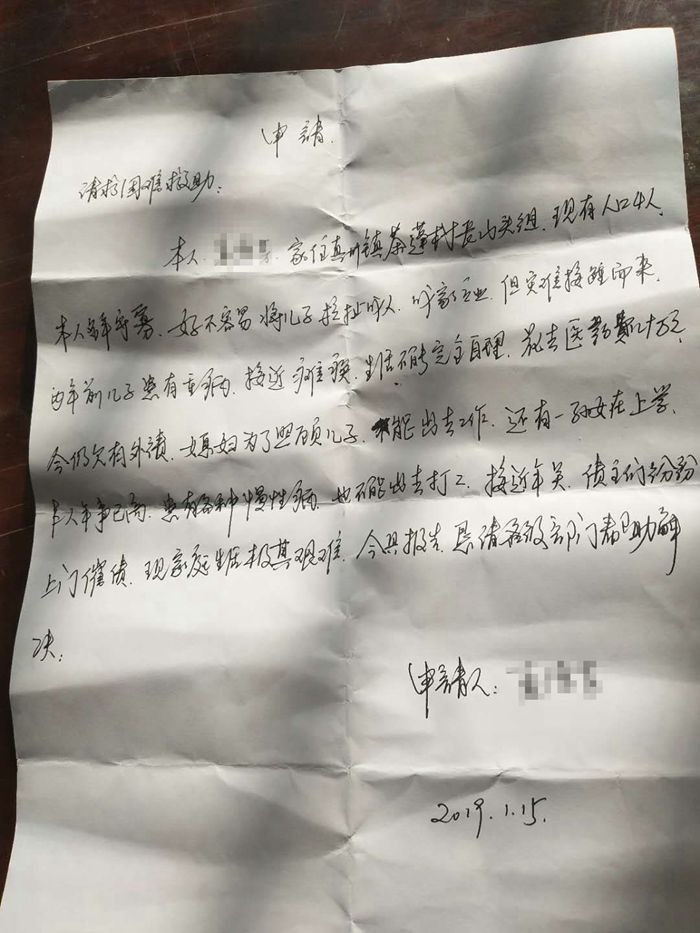 申请
请求困难救助:
本人 家住真州镇茶蓬村长山头组,现有人口4人,
本人多年守寡,好不容易将儿子拉扯成人,成家立业,但灾难接踵而来,
两年前儿子患有重病,接近瘫痪,生活不能完全自理,花去医药费几十万元,
今仍欠有外债,媳妇为了照顾儿子,不能出去工作,还有一孙女在上学,
本人年事已高,患有各种慢性病,也不能出去打工,接近年关,债主们纷纷
上门催债,现家庭生活极其艰难,今具报告,恳请各级部门帮助解
决;
申请人:
2019.1.15.